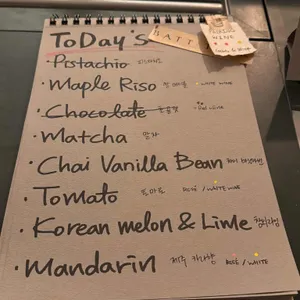 ToDay's
· Pistachio 피스타치오
· Maple Riso / WHITE WINE
· Chocolate 초콜릿
· Matcha 말차
· Chai Vanilla Bean
· Tomato 토마토 ROSÉ / WHITE WINE
· Korean melon & Lime
· Mandarin 제주 카라향 ROSÉ / WHITE